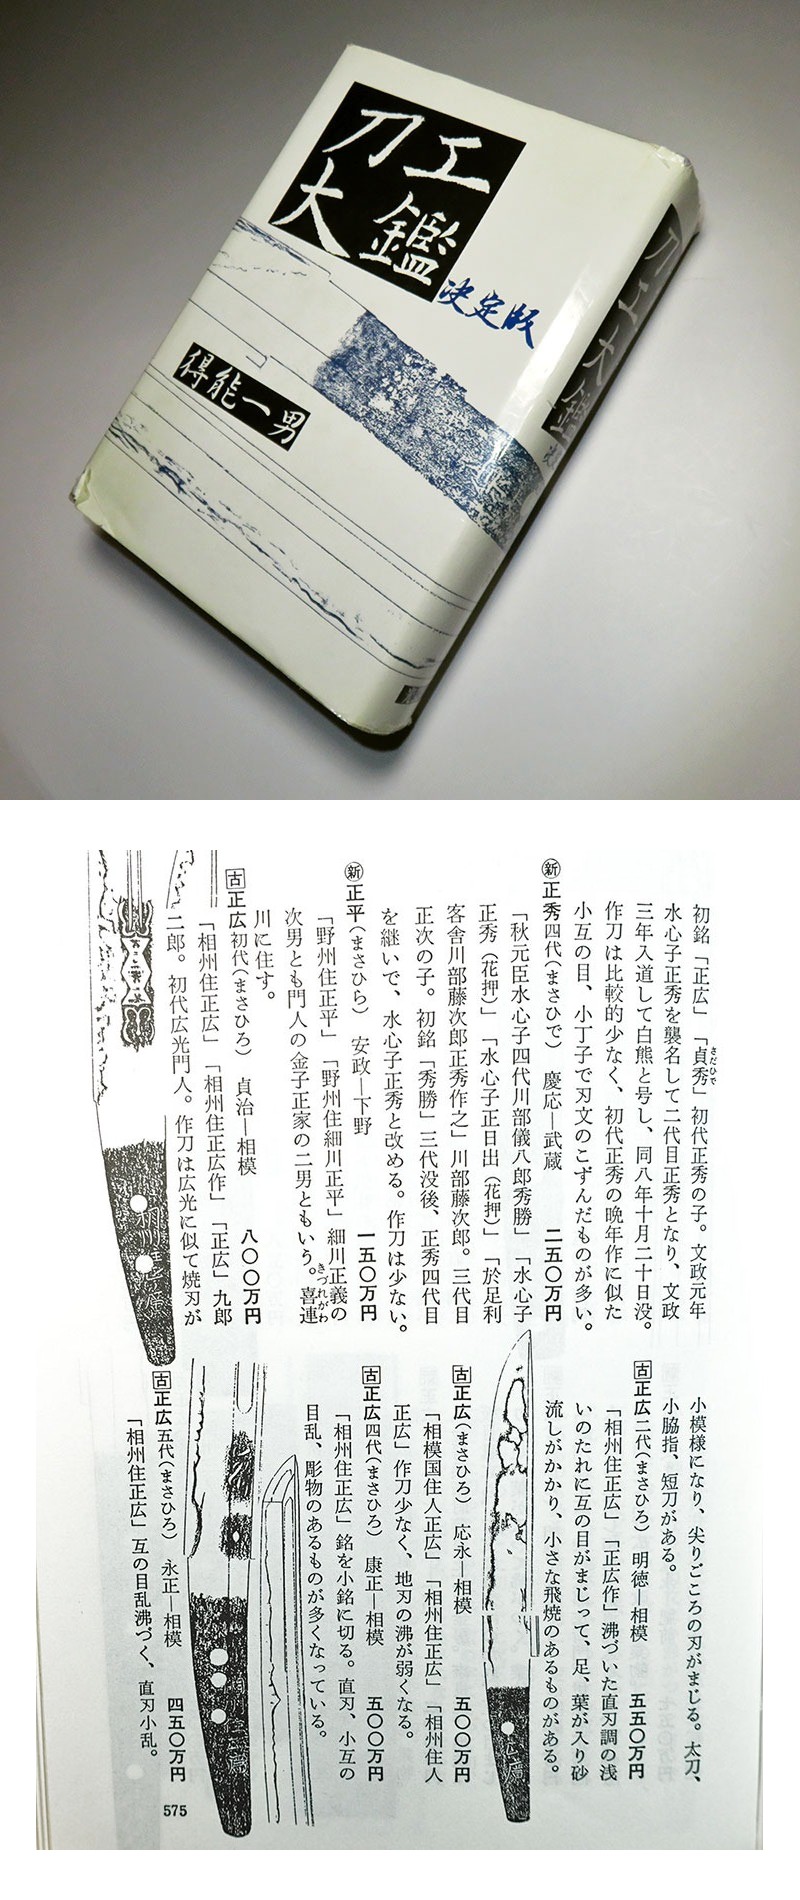 刀工
大鑑
決定版
得能一男
刀工大鑑
初銘「正広」「貞秀」初代正秀の子。文政元年
さだひで
水心子正秀を襲名して二代目正秀となり、文政
三年入道して白熊と号し、同八年十月二十日没。
作刀は比較的少なく、初代正秀の晩年作に似た
小互の目、小丁子で刃文のこずんだものが多い。
新正秀四代(まさひで) 慶応―武蔵 二五〇万円
「秋元臣水心子四代川部儀八郎秀勝」「水心子
正秀(花押)」「水心子正日出(花押)」「於足利
客舎川部藤次郎正秀作之」川部藤次郎。三代目
正次の子。初銘「秀勝」三代没後、正秀四代目
を継いで、水心子正秀と改める。作刀は少ない。
新正平(まさひら) 安政―下野 一五〇万円
「野州住正平」「野州住細川正平」細川正義の
次男とも門人の金子正家の二男ともいう。喜連
きづれがわ
川に住す。
古正広初代(まさひろ) 貞治―相模 八〇〇万円
「相州住正広」「相州住正広作」「正広」九郎
二郎。初代広光門人。作刀は広光に似て焼刃が
小模様になり、尖りごころの刃がまじる。太刀、
小脇指、短刀がある。
古正広二代(まさひろ) 明徳―相模 五五〇万円
「相州住正広」「正広作」沸づいた直刃調の浅
いのたれに互の目がまじって、足、葉が入り砂
流しがかかり、小さな飛焼のあるものがある。
古正広(まさひろ) 応永―相模 五〇〇万円
「相模国住人正広」「相州住正広」「相州住人
正広」作刀少なく、地刃の沸が弱くなる。
古正広四代(まさひろ) 康正―相模 五〇〇万円
「相州住正広」銘を小銘に切る。直刃、小互の
目乱、彫物のあるものが多くなっている。
古正広五代(まさひろ) 永正―相模 四五〇万円
「相州住正広」互の目乱沸づく、直刃小乱。
575